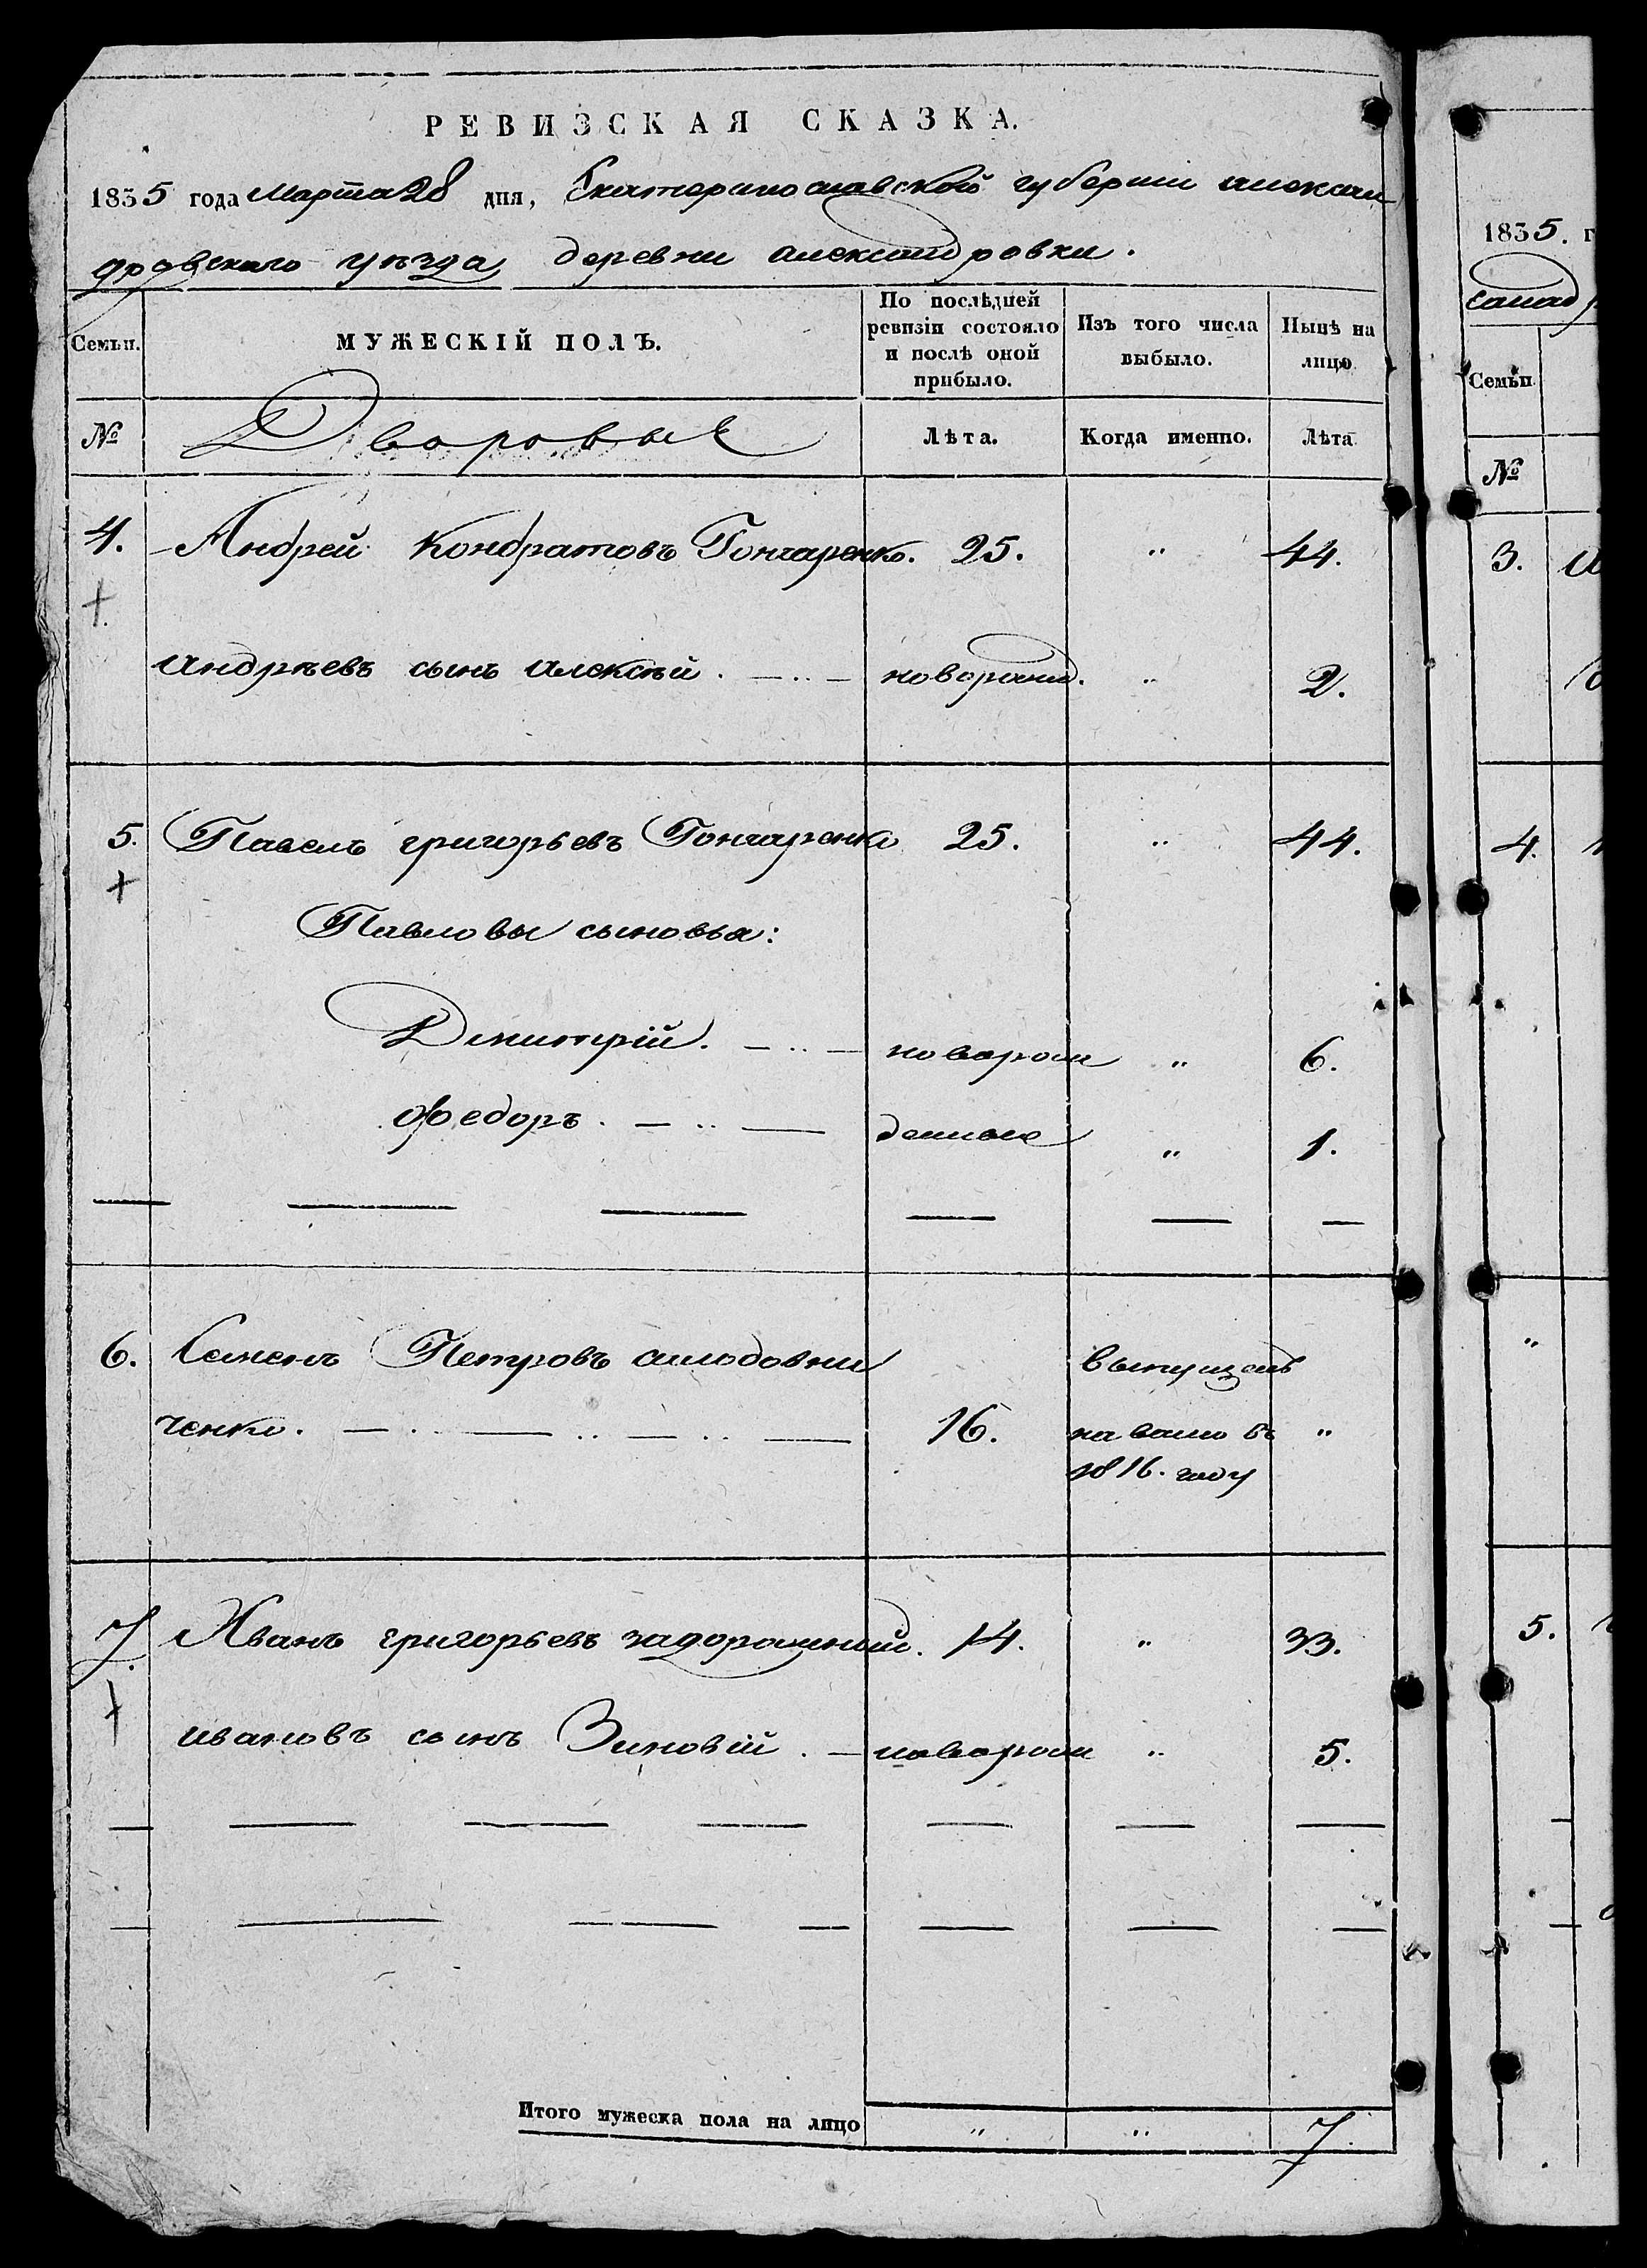 РЕВИЗСКАЯ СКАЗКА.
1835 года Марта 28 дня, Екатеринославской губерніи алексан
дровскаго уѣзда деревни александровки.
Семьи.
МУЖЕСКІЙ ПОЛЪ.
По послѣдней
ревизіи состояло
и послѣ оной
прибыло.
Изъ того числа
выбыло.
Нынѣ на
лицо
№
Дворовые
Лѣта.
Когда именно.
Лѣта
4. Андрей Кондратовъ Гончаренко. 25. " 44.
андрѣевъ сынъ алексѣй. новорожд. " 2.
5. Павелъ григорьевъ Гончаренко 25. " 44.
Павловы сыновья:
Дмитрій. новорож " 6.
Федоръ. денные " 1.
6. Семенъ Петровъ выпущенъ
ченко. 16. на волю въ "
1816. году
7. Иванъ григорьевъ задорожный. 14. " 33.
ивановъ сынъ Зиновій. новорож " 5.
Итого мужеска пола на лицо " " 7.
1835. г
Семьи
№
3.
4.
"
5.